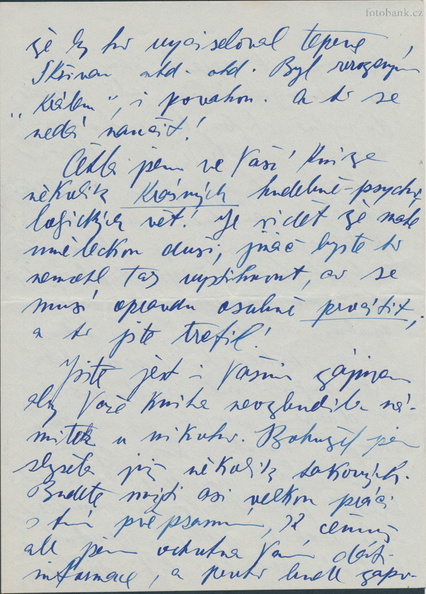 fotobank.cz
že by to vyčísloval teprve
Skřivan atd. atd. Byl rozeným
"Králem", i povahou. A to se
nedá naučit!
Četla jsem ve Vaší knize
několik krásných hudebně-psycho-
logických vět! Je vidět že máte
uměleckou duši, jinač byste to
nemohl tak vystihnout, co se
musí opravdu osobně procítit,
a to jste trefil!
Jistě jest i Vašim zájmem
aby Vaše kniha nevzbudila ná-
mitek u nikoho. Bohužel jsem
slyšela již několik takových.
Budete mít asi velkou práci
s tím přepsaním,
ale jsem ochotna Vám dát
informace, a proto bude zapo-